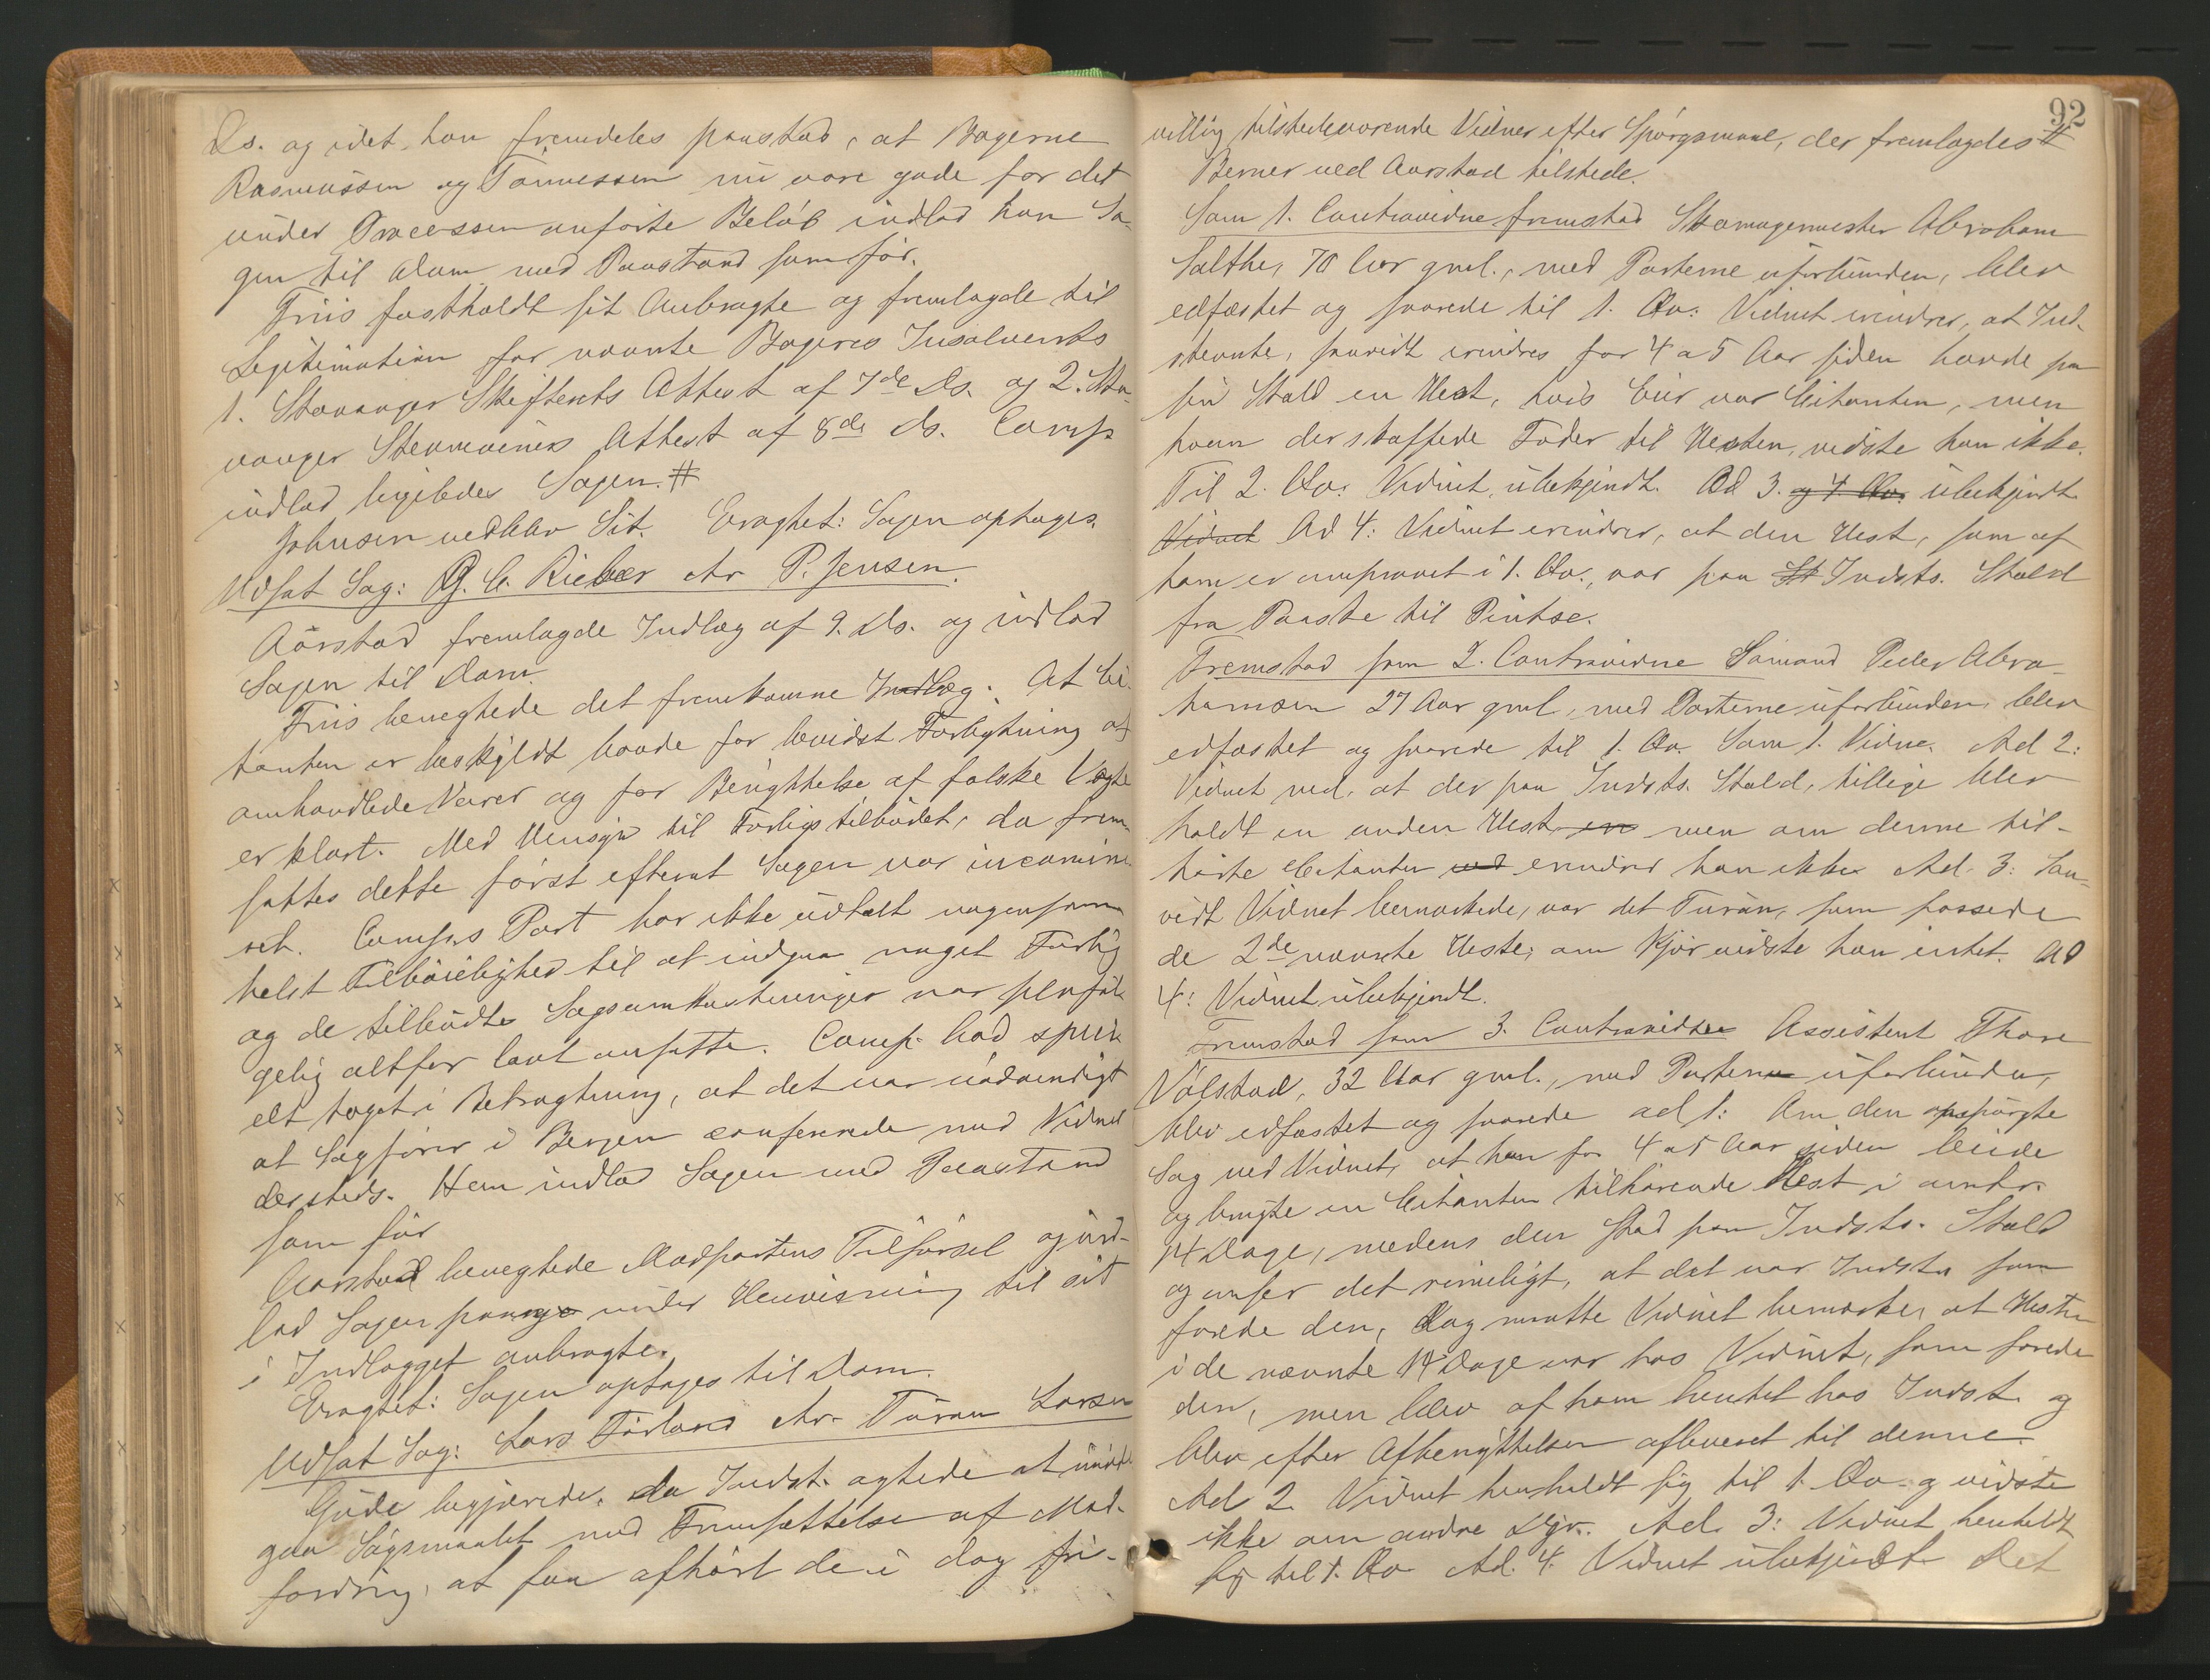 Ds. og idet han fremdeles paastod, at Bagerne
Rasmussen og Tönnessen nu vare gode for det
under Processen anförte Belöb indlod han Sa-
gen til Dom med Paastand som för.
Friis fastholdt sit Anbragte og fremlagde til
Legitimation for nævnte Bageres Insolvents
1. Stavanger Skifterets Attest af 7de Ds. og 2. Sta-
vanger Stevnevidners Attest af 8de ds. Comp
indlod ligeledes Sagen. #
Johnsen vedblev Sit. Eragtet: Sagen optages.
Udsat Sag: G. C. Rieber ctr P. Jensen.
Aarstad fremlagde Indlæg af 9. Ds. og indlod
Sagen til Dom.
Friis benegtede det fremkomne Indlæg. At Ci-
tanten er beskyldt baade for bevidst Forbytning af
omhandlede Varer og for Benyttelse af falske Vægte
er klart. Med Hensyn til Forligstilbudet, da frem-
sattes dette först efterat Sagen var incamin-
ret. Comps Part har ikke udtalt nogensom-
helst Tilböielighed til at indgaa noget Forlig
og de tilbudte Sagsomkostninger var selvföl-
gelig altfor lavt ansatte. Comp. had speci-
elt taget i Betragtning, at det var nödvendigt
at Sagförer i Bergen confererede med Vidnet
dersteds. Han indlod Sagen med Paastand
som för
Aarstad benegtede Modpartens Tilförsel og ind-
lod Sagen paany under Henvisning til sit
i Indlægget anbragte.
Eragtet: Sagen optages til Dom.
Udsat Sag: Lars Förland ctr. Töran Larsen
Gude begjærede, da Indst. agtede at imöde-
gaa Sögsmaalet med Fremsættelse af Mod-
fordring, at faa afhört de i dag fri-
92
villig tilstedeværende Vidner efter Spörgsmaal, der fremlagdes #
Berner ved Aarstad tilstede.
Som 1. Contravidne fremstod Skomagermester Abraham
Salthe, 70 Aar gml., med Parterne uforbunden, blev
edfæstet og svarede til 1. Qv: Vidnet erindrer, at Ind-
stevnte, saavidt erindres for 4 a 5 Aar siden havde paa
sin Stald en Hest, hvis Eier var Citanten, men
hvem der skaffede Foder til Hesten, vidste han ikke.
Til 2. Qv: Vidnet ubekjendt. Ad 3. og 4 Qv. ubekjendt
Vidnet Ad 4: Vidnet erindrer, at den Hest, som af
ham er omprovet i 1. Qv., var paa St Indsts. Stald
fra Paaske til Pintse.
Fremstod som 2. Contravidne Sömand Peder Abra-
hamsen 27 Aar gml, med Parterne uforbunden, blev
edfæstet og svarede til 1. Qv. Som 1. Vidne. Ad 2:
Vidnet ved, at der paa Indsts. Stald, tillige blev
holdt en anden Hest en men om denne til-
hörte Citanten ved erindrer han ikke. Ad. 3: Saa-
vidt Vidnet bemærkede, var det Turan, som passede
de 2de nævnte Heste; om Kjör vidste han intet. Ad
4: Vidnet ubekjendt.
Fremstod som 3. Contravidne Assistent Thore
Völstad, 32 Aar gml., med Parterne uforbunden,
blev edfæstet og svarede ad 1: Om den opspurgte
Sag ved Vidnet, at han for 4 a 5 Aar siden leiede
og brugte en Citanten tilhörende Hest i omtr.
14 Dage, medens den stod paa Indsts. Stald
og anser det rimeligt, at det var Indst. som
forede den, dog maatte Vidnet bemærke, at Hesten
i de nævnte 14 Dage var hos Vidnet, som forede
den, men blev af ham hentet hos Indst. og
blev efter Afbenyttelsen afleveret til denne.
Ad 2. Vidnet henholdt sig til 1. Qv. og vidste
ikke om andre Dyr. Ad. 3: Vidnet henholdt
sig til 1. Qv. Ad. 4. Vidnet ubekjendt. Det